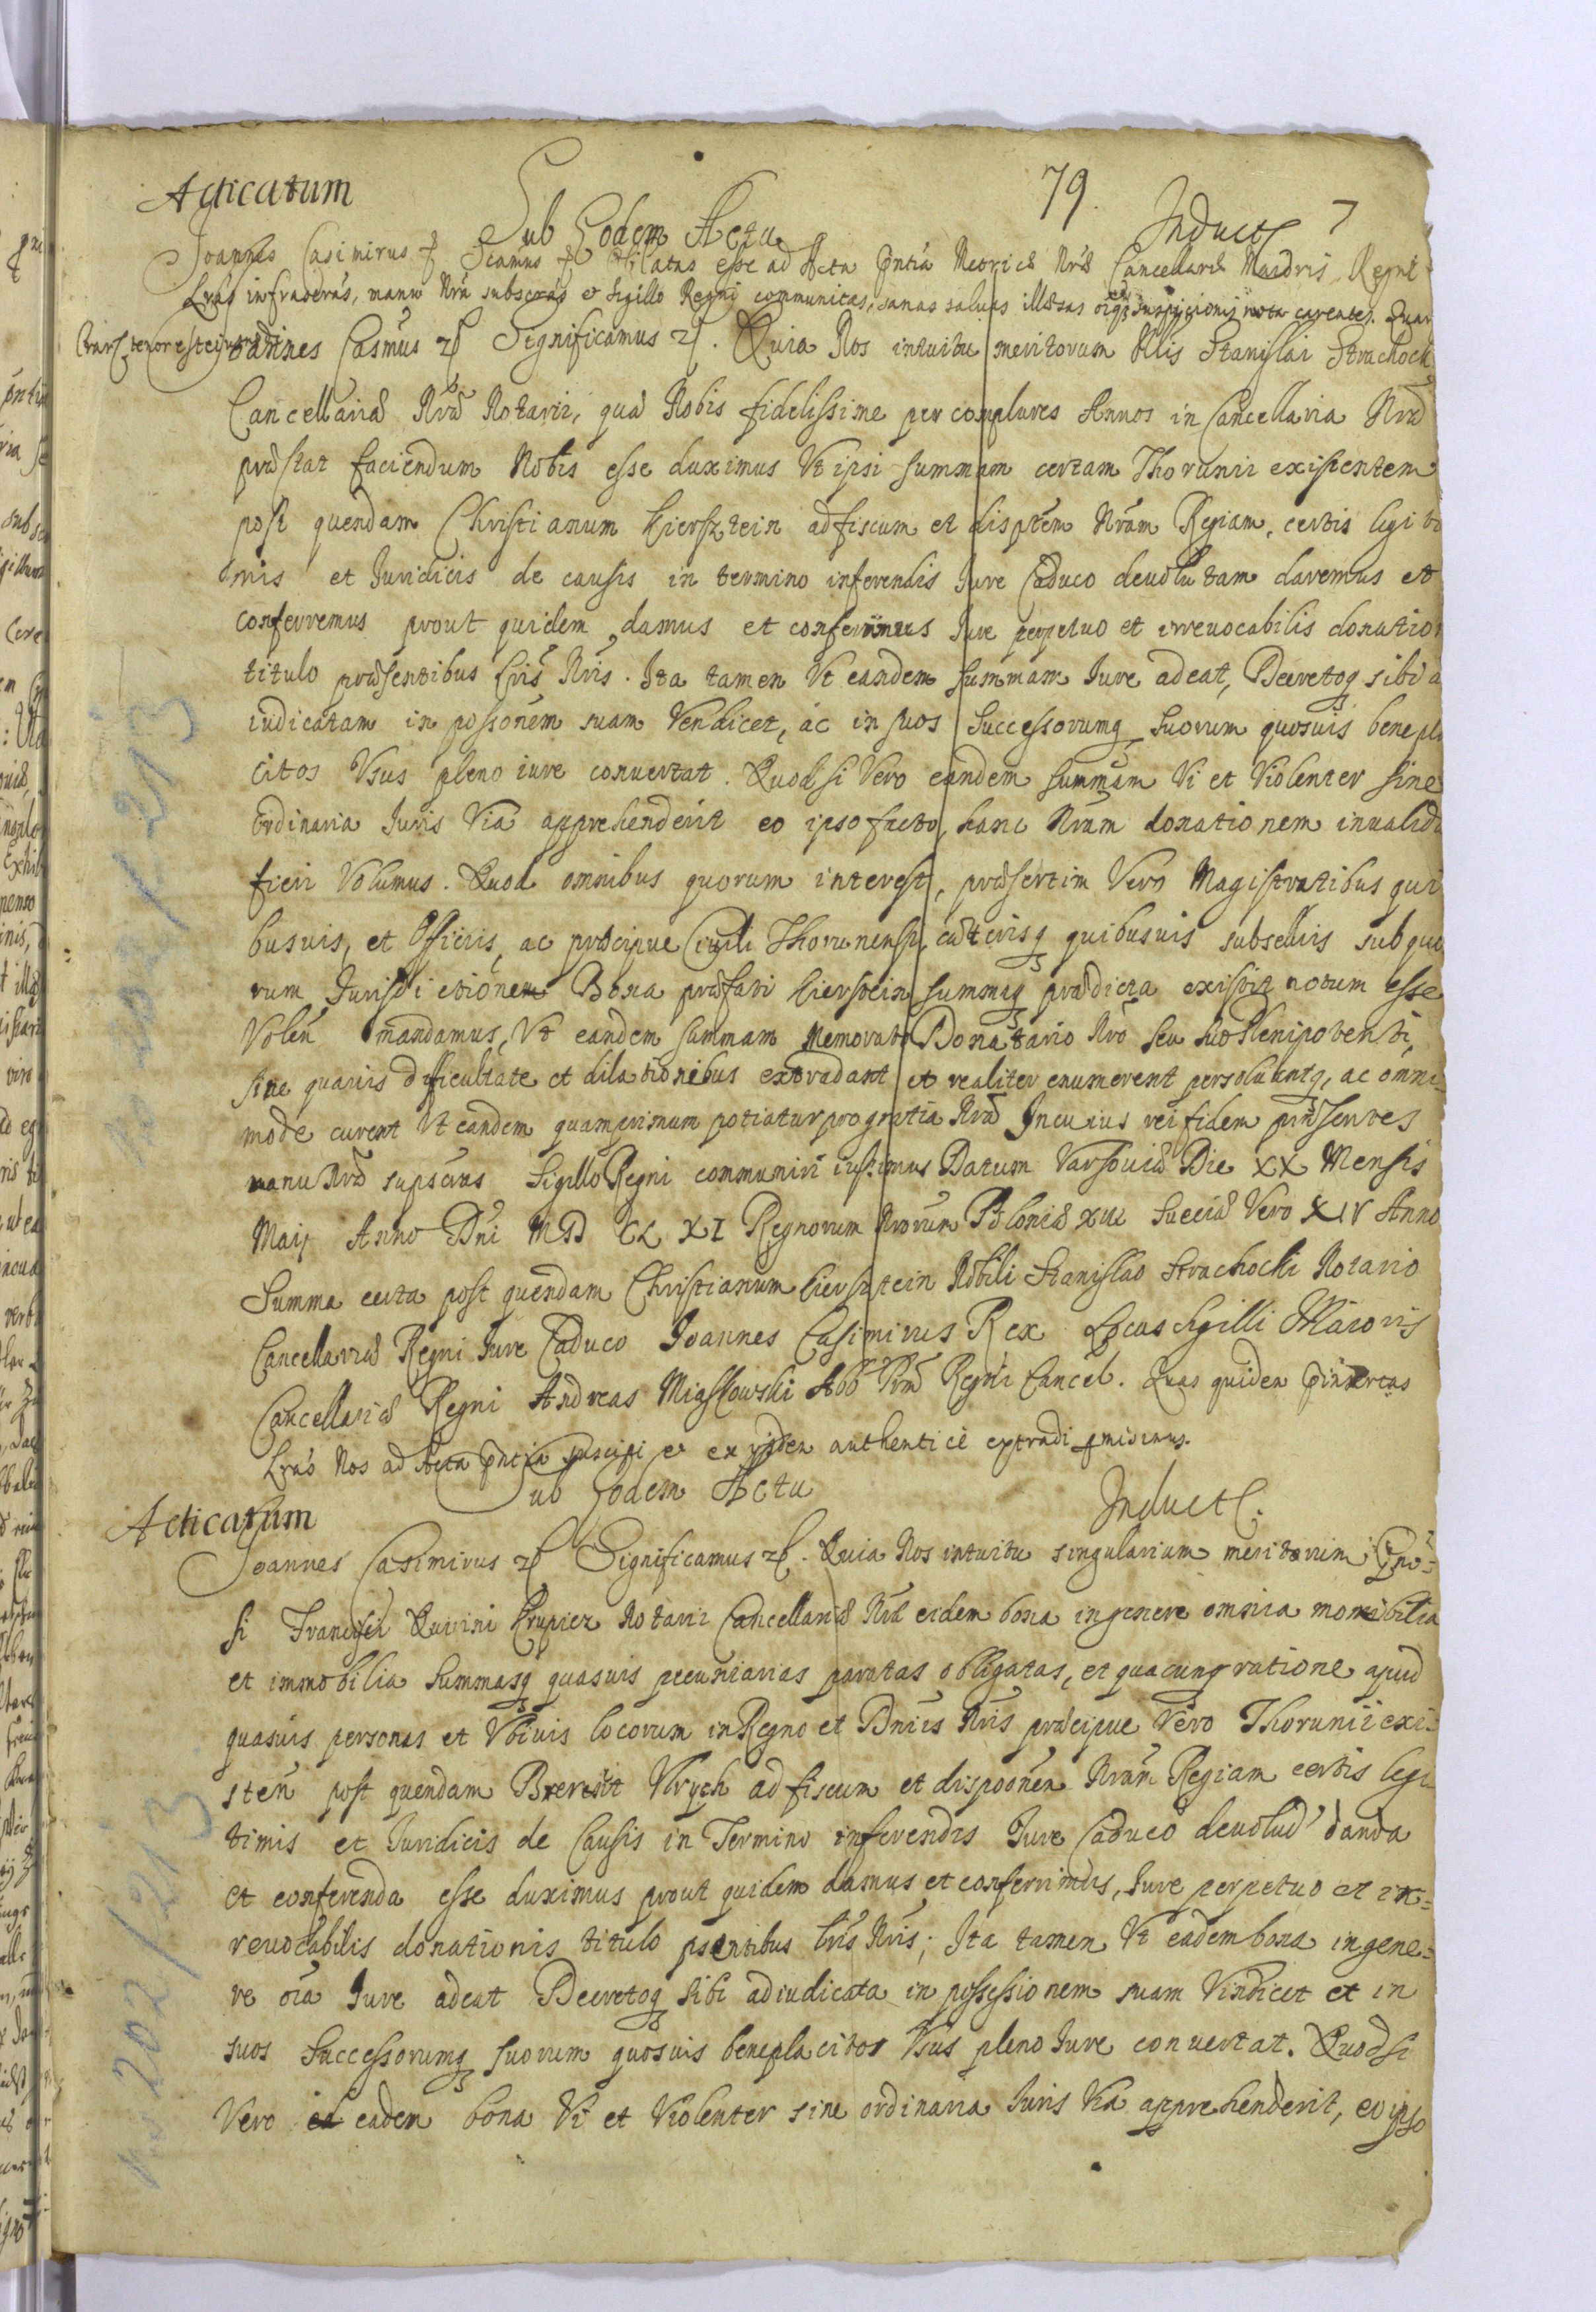 Acticatum
79.
Sub Eodem Actu
Induct
Joannes Casimirus Scamus Oblatas esse ad Acta pntia Metrices Nrae Cancellariae Maioris Regni
Lras infrascras, manu Nra subscras et Sigillo Regni communitas, sanas saluas illaesas oiq suspicionis nota carentes. Quar
tenor est eiusmodi Joannes Casmus Significamus. Quia Nos intuitu meritorum Nlis Stanislai Strachock
Cancellariae Nrae Notarii, quae Nobis fidelissime per complures Annos in Cancellaria Nra
praestat faciendum Nobis esse duximus Vt ipsi summam certam Thorunii existentem
post quendam Christianum Kiersztein ad fiscum et disptem Nram Regiam, certis legiti
mis et Iuridicis de causis in termino inferendis Iure Caduco deuolutam daremus et
conferremus prout quidem damus et conferimus Iure perpetuo et irreuocabilis donation
titulo praesentibus Lris Nris. Ita tamen Vt eandem summam Iure adeat, Decretoq sibi a
iudicatam in possonem suam Vendicet, ac in suos Successorumq suorum quosuis benepla
citos Vsus pleno iure conuertat. Quod si Vero eandem summam Vi et Violenter sine
Ordinaria Iuris Via apprehenderit eo ipso facto, hanc Nram donationem inualida
fieri Volumus. Quod omnibus quorum interest, praesertim Vero Magistratibus qui
busuis, et Officiis, ac praecipue Ciuili Thorunensi, caeterisq quibusuis subselliis sub quo
rum Jurisdictionem Bona praefati Kierstein summaq praedicta existit notum esse
Volen mandamus, Vt eandem summam Memorato Donatario Nro seu suo Plenipotenti,
sine quauis difficultate et dilationibus extradant et realiter enumerent persoluantq, ac omni-
mode curent Vt eandem quamprimum potiatur pro gratia Nra In cuius rei fidem praesentes
manu Nra supscras Sigillo Regni communiri iussimus Datum Varsouiae Die XX Mensis
Maij Anno Dni MDCLXI Regnorum Nrorum Poloniae XIII Sueciae Vero XIV Anno
Summa certa post quendam Christianum Kiersztein Nobili Stanislao Strachocki Notario
Cancellariae Regni Iure Caduco Joannes Casimirus Rex Locus Sigilli Maioris
Cancellariae Regni Andreas Miaskowski Abb Prm Regni Cancel. Quas quidem
Lras Nos ad Acta pntia suscipi et ex ijsdem authentice extradi pmisimus.
Sub Eodem Actu
Acticatum
Induct.
Joannes Casimirus Significamus. Quia Nos intuitu singularium meritorum Gno-
si Francisci Quirini Krupiez Notarii Cancellariae Nrae eidem bona in genere omnia mobilia
et immobilia Summasq quasuis pecuniarias paratas obligatas, et quacunq ratione apud
quasuis personas et Vbiuis locorum in Regno et Dniis Nris praecipue Vero Thorunii exi-
sten post quendam Vlrych ad fiscum et dispoonen Nram Regiam certis legi
timis et Iuridicis de Causis in Termino inferendis Iure Caduco deuolud danda
et conferenda esse duximus prout quidem damus et conferrimus, Iure perpetuo et ir-
reuocabilis donationis titulo psentibus lris Nris; Ita tamen Vt eadem bona in gene-
re oia Iure adeat Decretoq Sibi adiudicata in possessionem suam Vindicet et in
suos Successorumq suorum quosuis beneplacitos Vsus pleno Iure conuertat. Quodsi
Vero eadem bona Vi et Violenter sine ordinaria Iuris Via apprehenderit, eo ipso
No 202/213